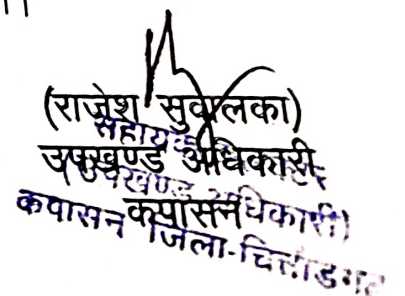 (राजेश सुवालका)
उपखण्ड अधिकारी
कपासन
सहायक
उपखण्ड अधिकारी)
कपासन जिला-चित्तौडगढ